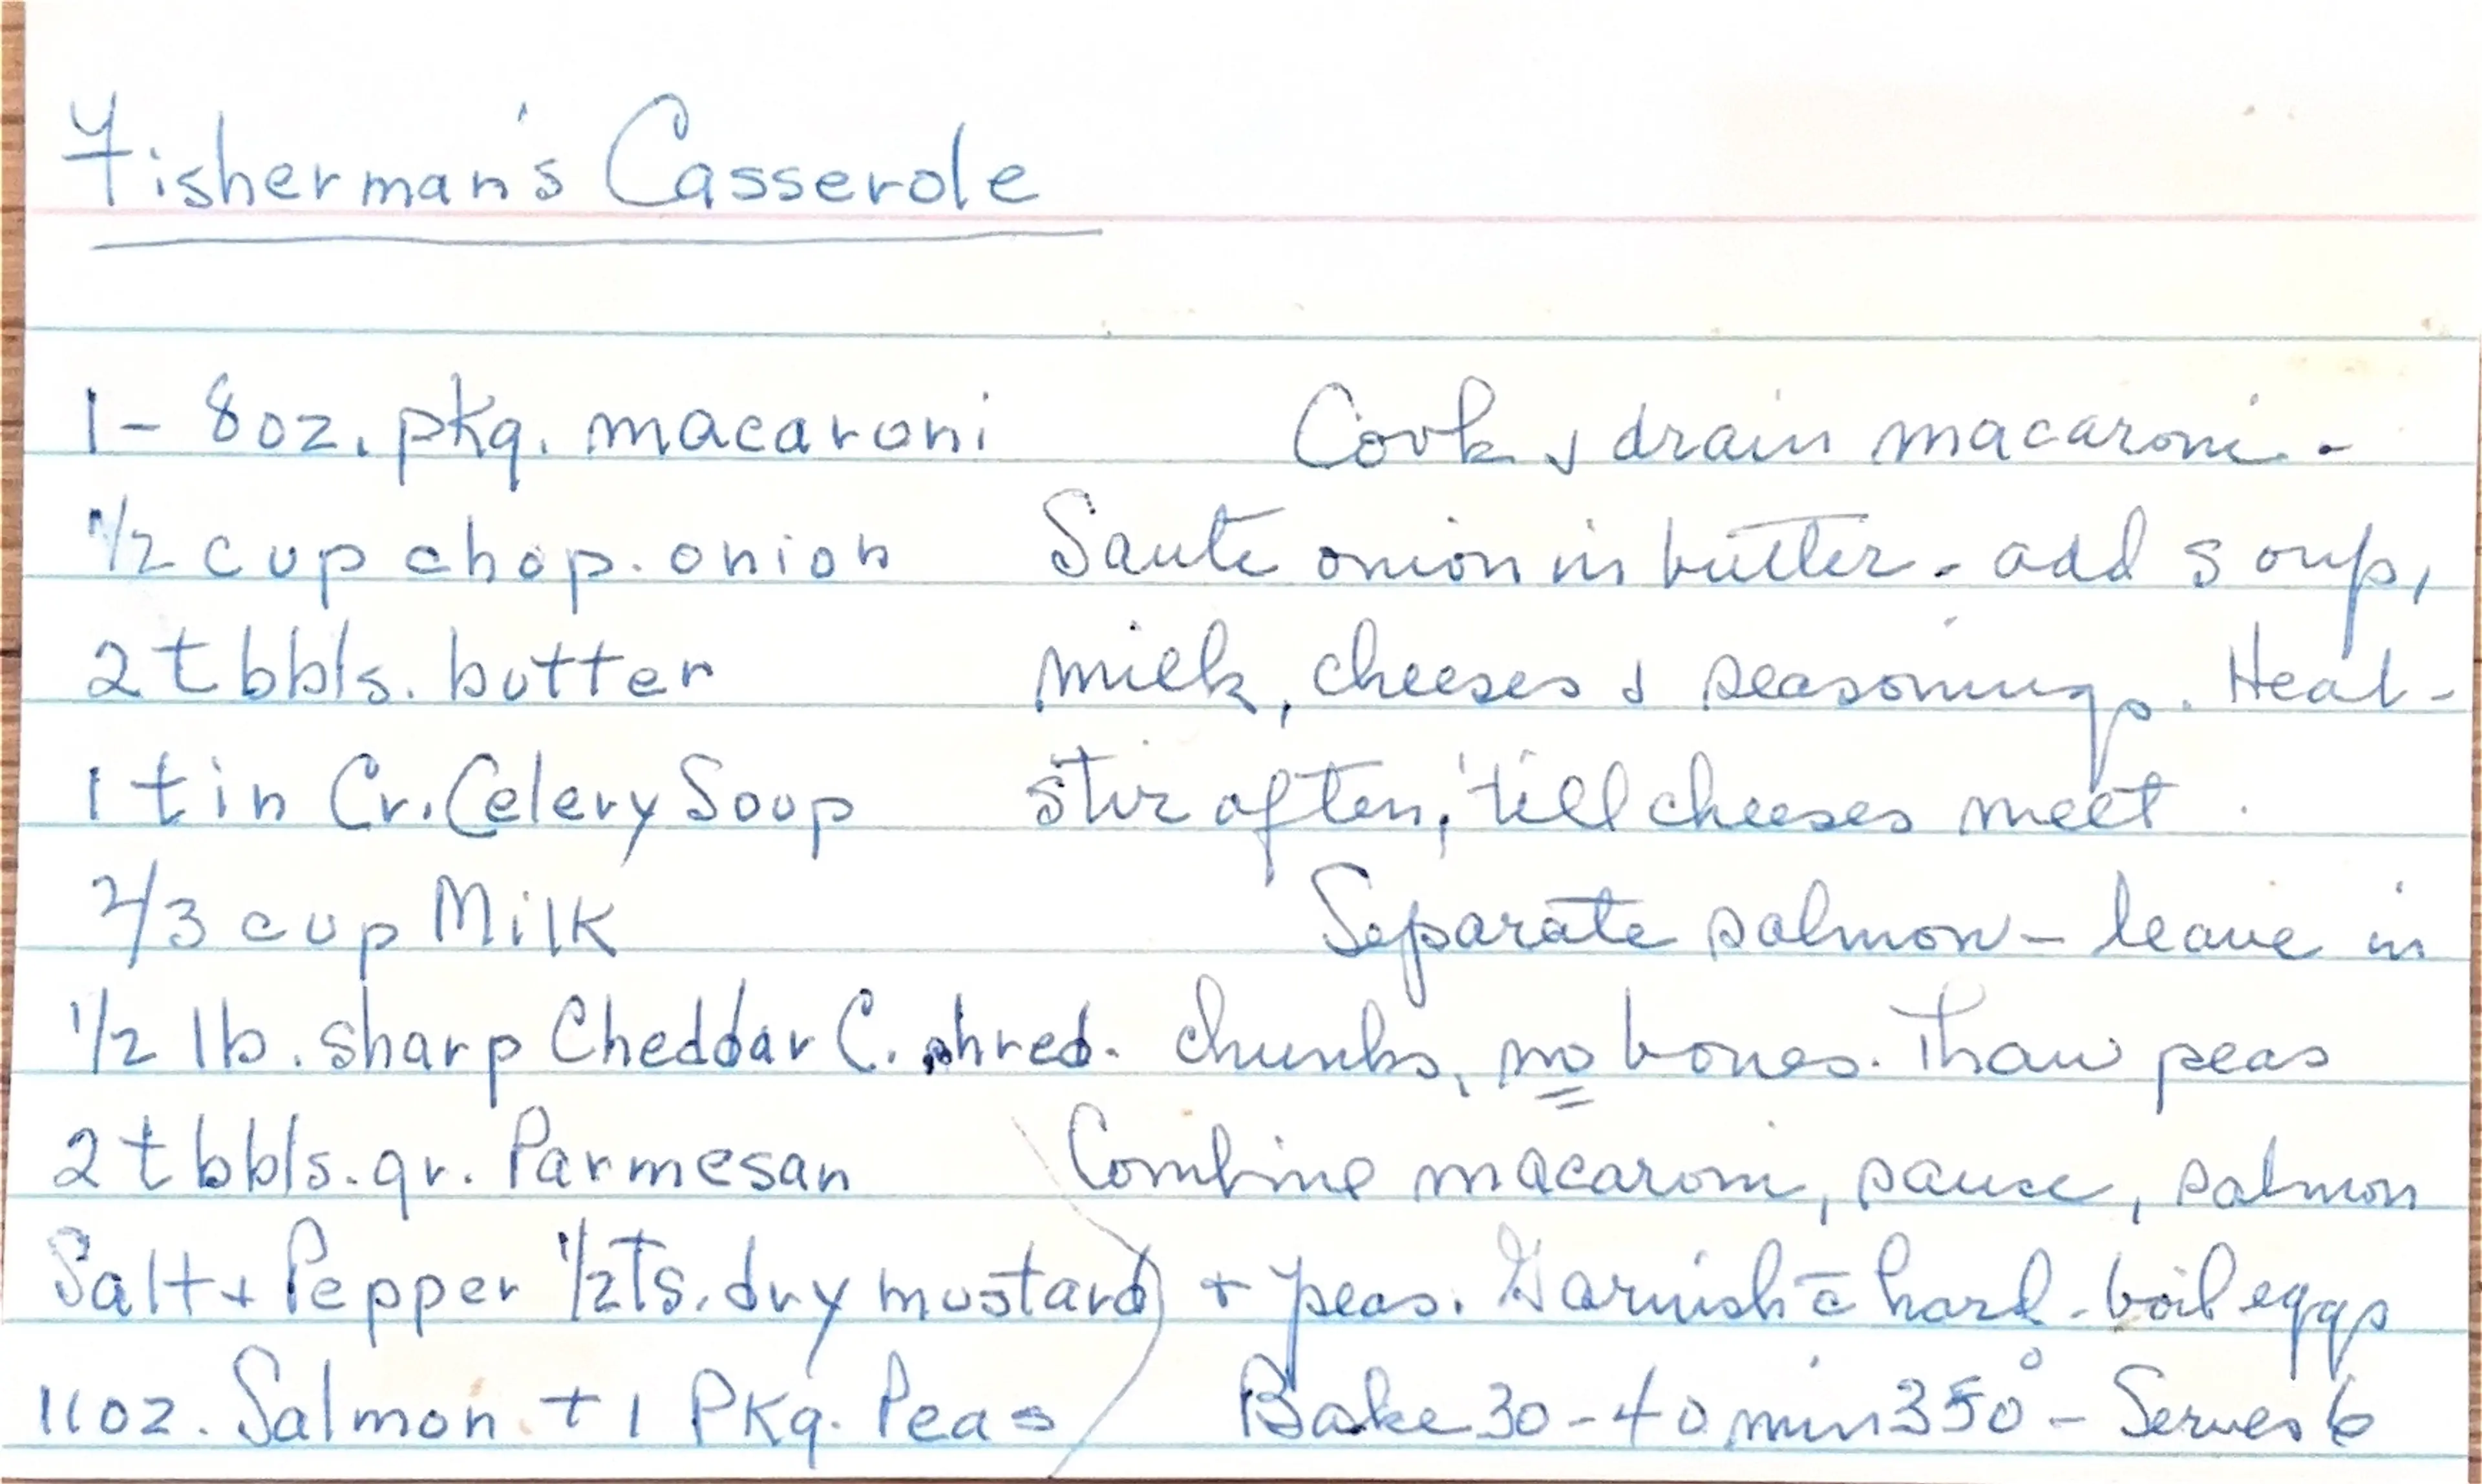 Fisherman's Casserole
1 - 8 oz. pkg. macaroni
1/2 cup chop. onion
2 tbbls. butter
1 tin Cr. Celery Soup
2/3 cup Milk
1/2 lb. sharp Cheddar C. shred.
2 tbbls. gr. Parmesan
Salt + Pepper 1/2 Ts. dry mustard
11 oz. Salmon + 1 Pkg. Peas
Cook & drain macaroni. -
Saute onion in butter - add soup,
milk, cheeses & seasonings. Heat -
stir often, 'till cheeses melt.
Separate salmon - leave in
chunks, no bones. Thaw peas
Combine macaroni, sauce, salmon
+ peas. Garnish c̄ hard-boil eggs
Bake 30-40 min 350° - Serves 6